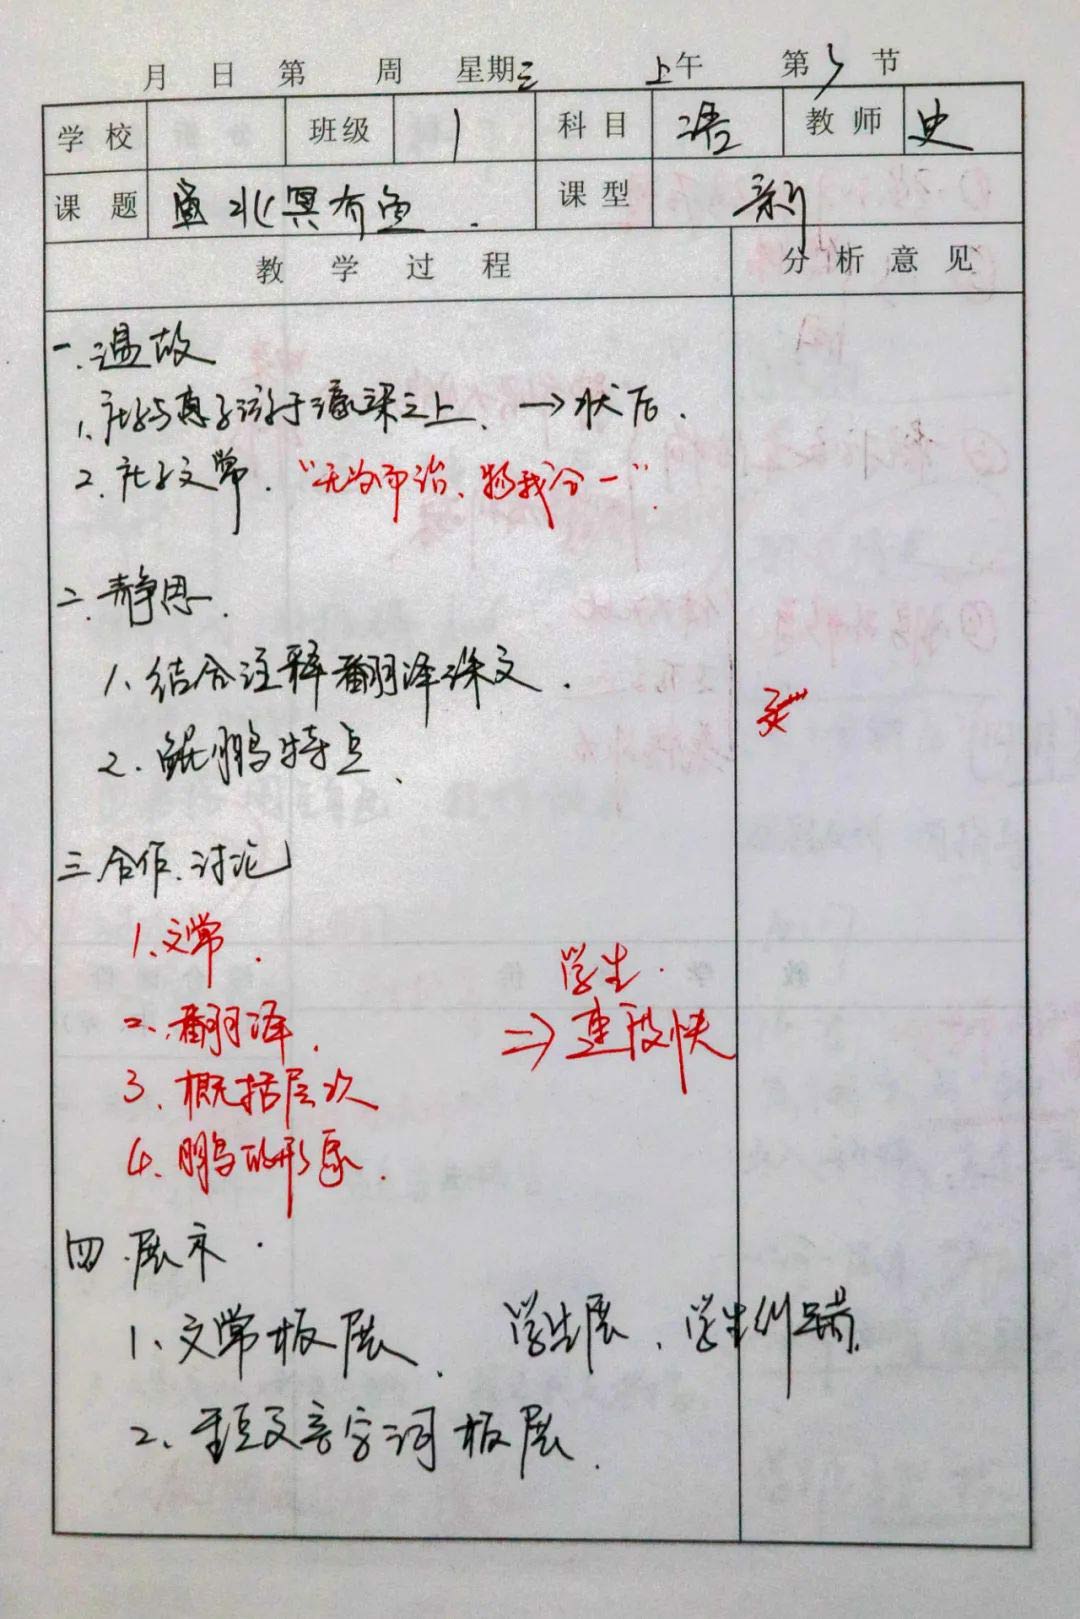 月 日 第 周 星期三 上午 第 节
学校 班级 1 科目 语 教师 史
课题 北冥有鱼. 课型 新
教学过程 分析意见
一.温故
1.庄子与惠子游于濠梁之上. →状后.
2.庄子文常. “无为而治、物我合一”.
二.静思.
1.结合注释翻译课文.
2.鲲鹏特点、
三.合作.讨论
1.文常.
2.翻译.
3.概括层次
4.鹏的形象.
学生.
=> 速度快
四.展示.
1.文常板展. 学生展、学生纠错.
2.重点文言字词板展.